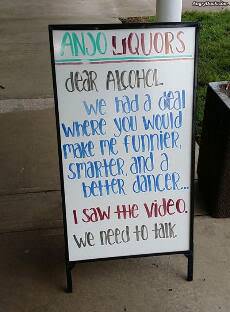 ANJO LIQUORS
dear ALCOHOL
we had a deal
where you would
make me funnier,
smarter, and a
better dancer...
I saw the video.
we need to talk